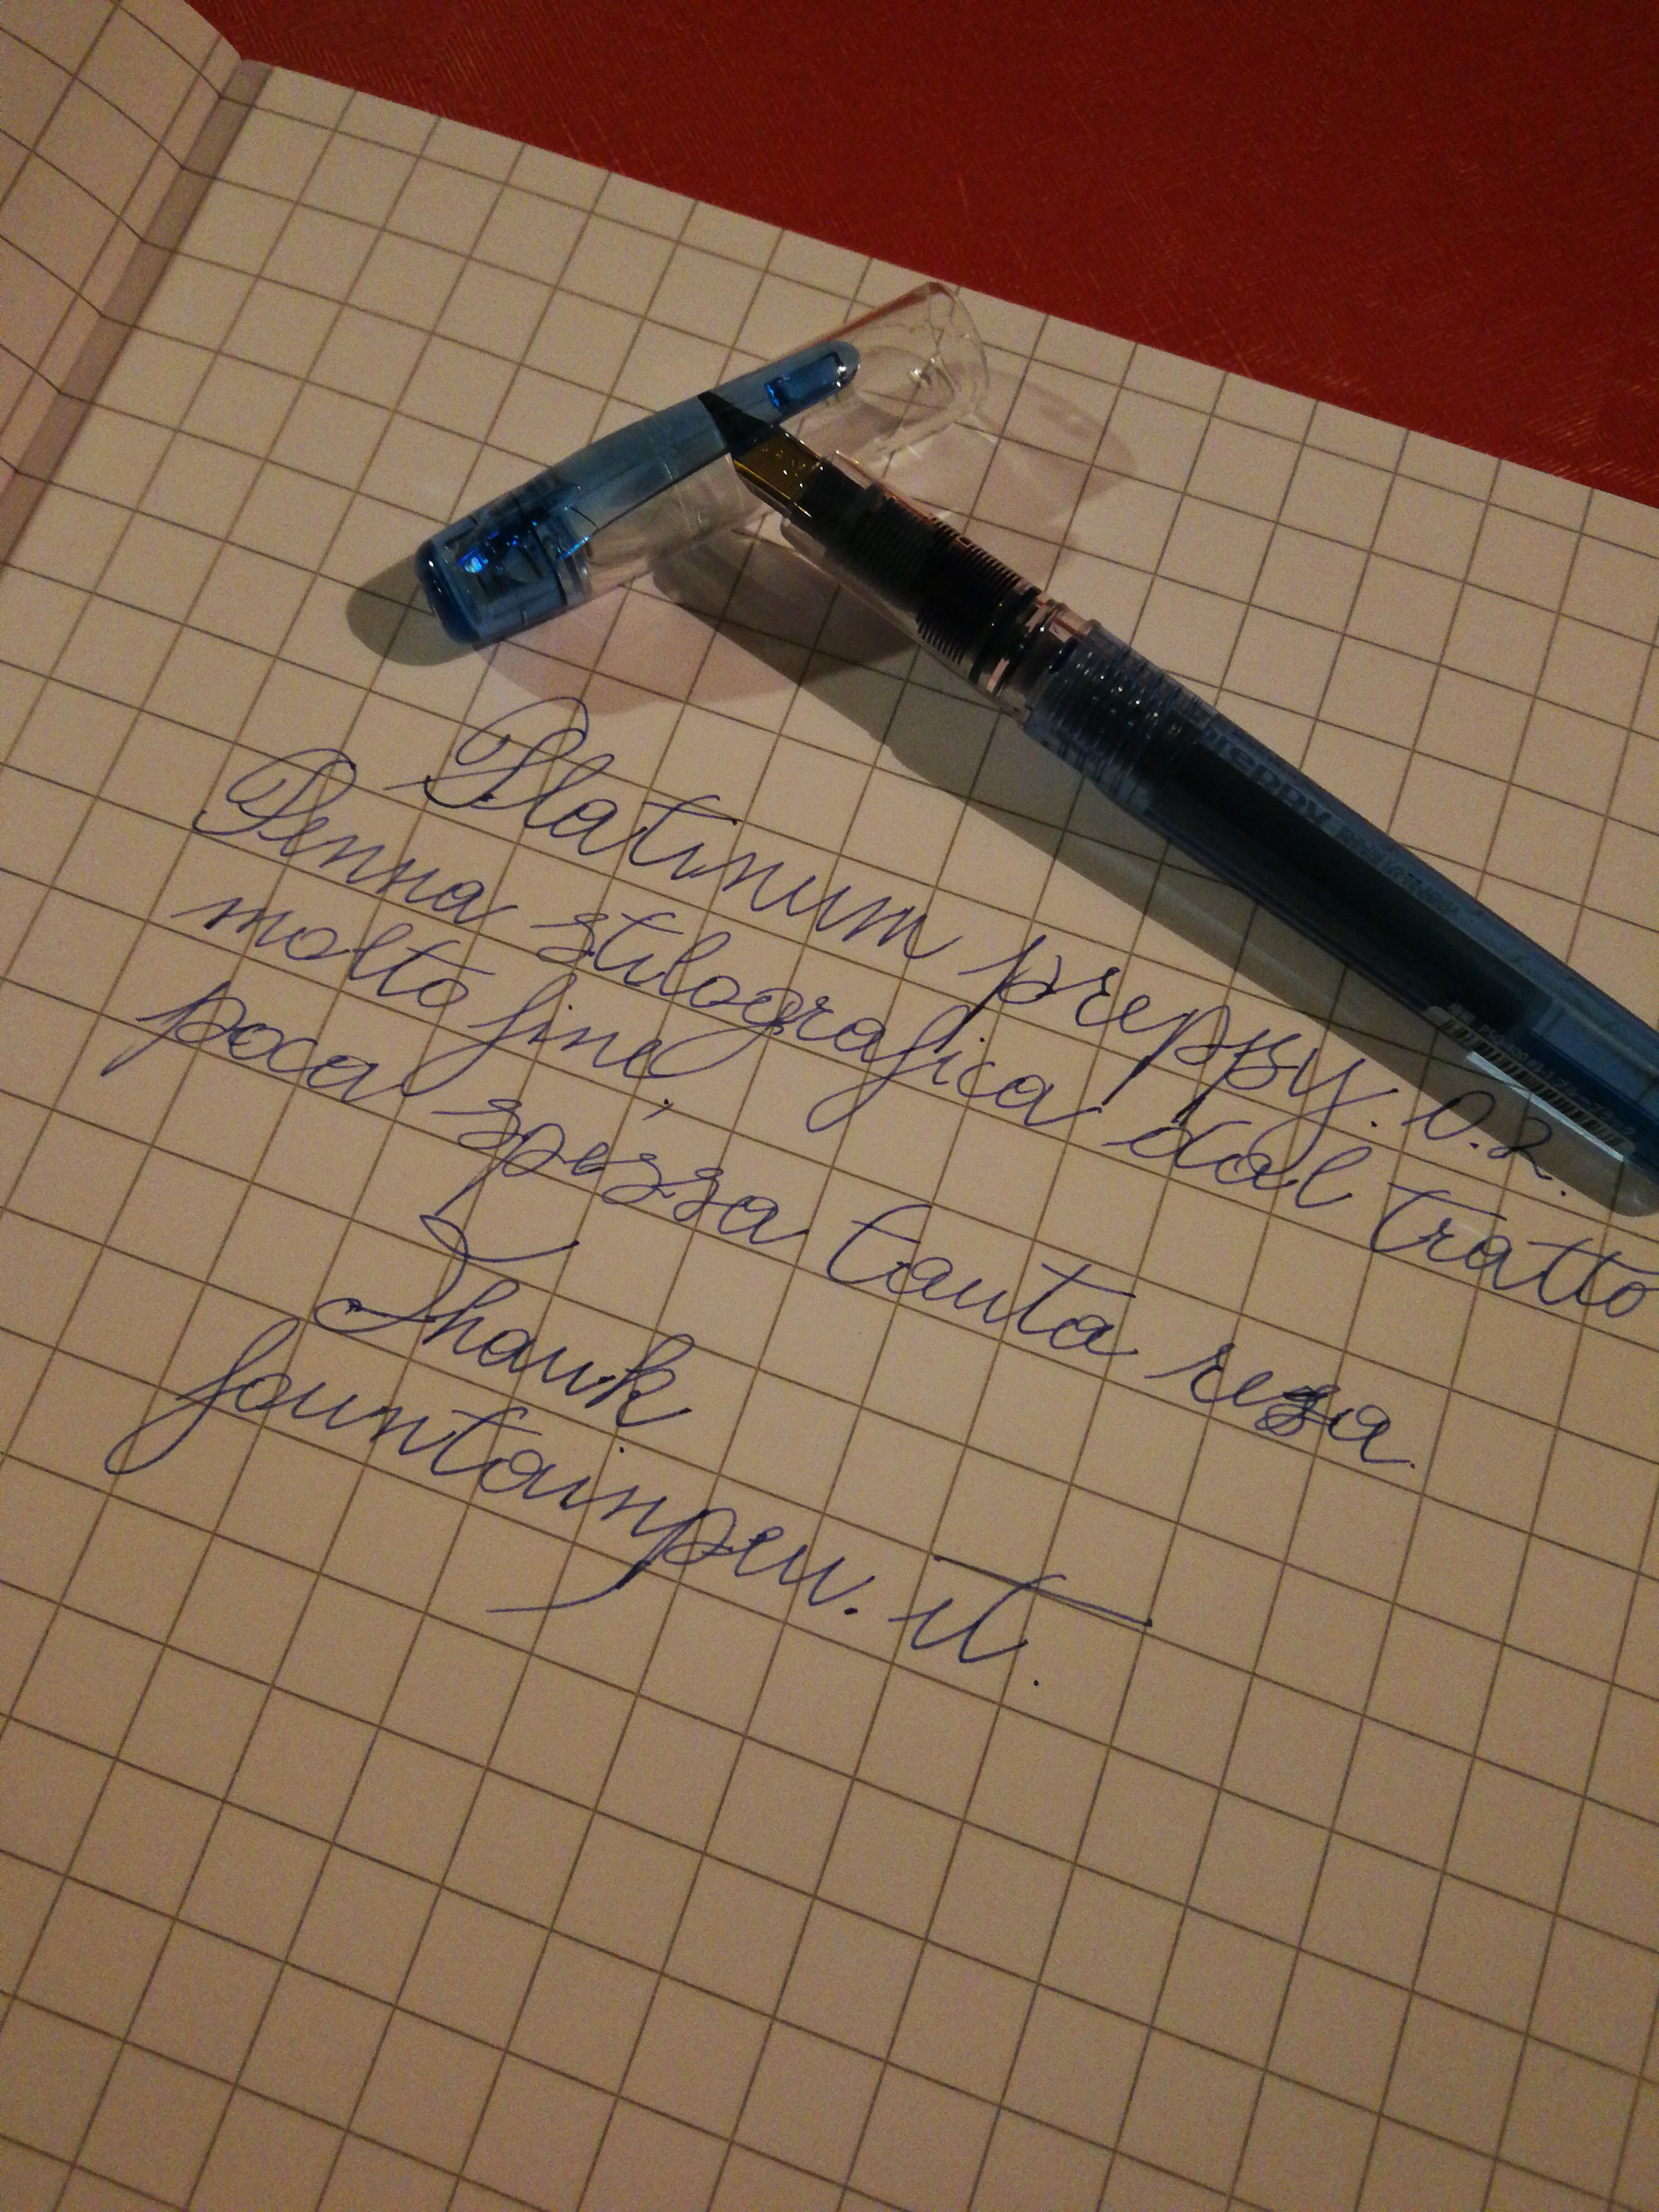 Platinum preppy. 0.2.
Penna stilografica dal tratto
molto fine,
poca spessa tanta resa.
Shawk
fountainpen.it.
preppy